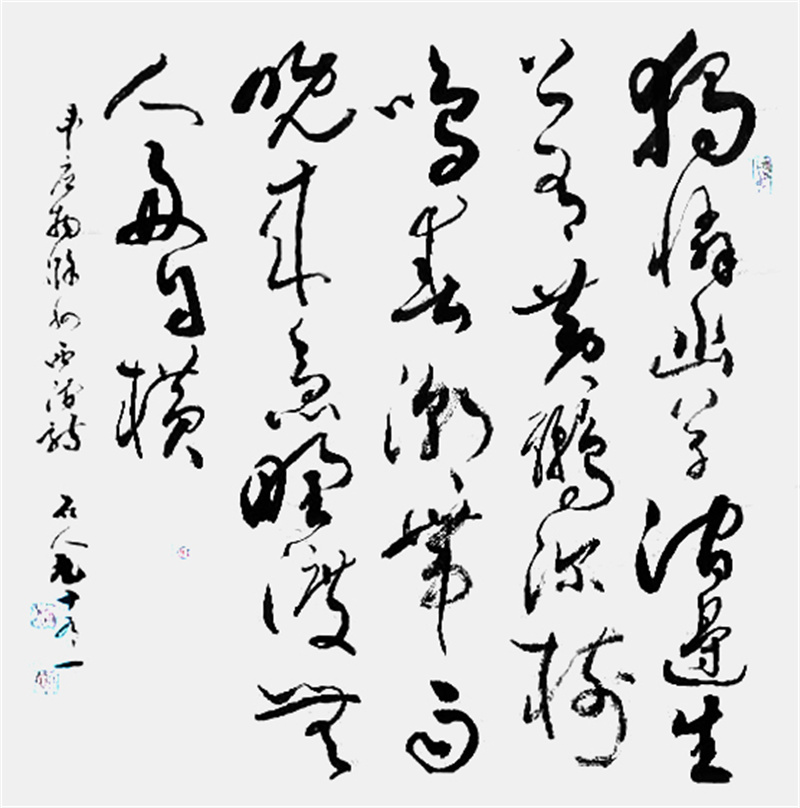 獨憐幽草澗邊生
上有黃鸝深樹
鳴春潮帶雨
晚來急野渡無
人舟自橫
韋應物滁州西澗詩 石人